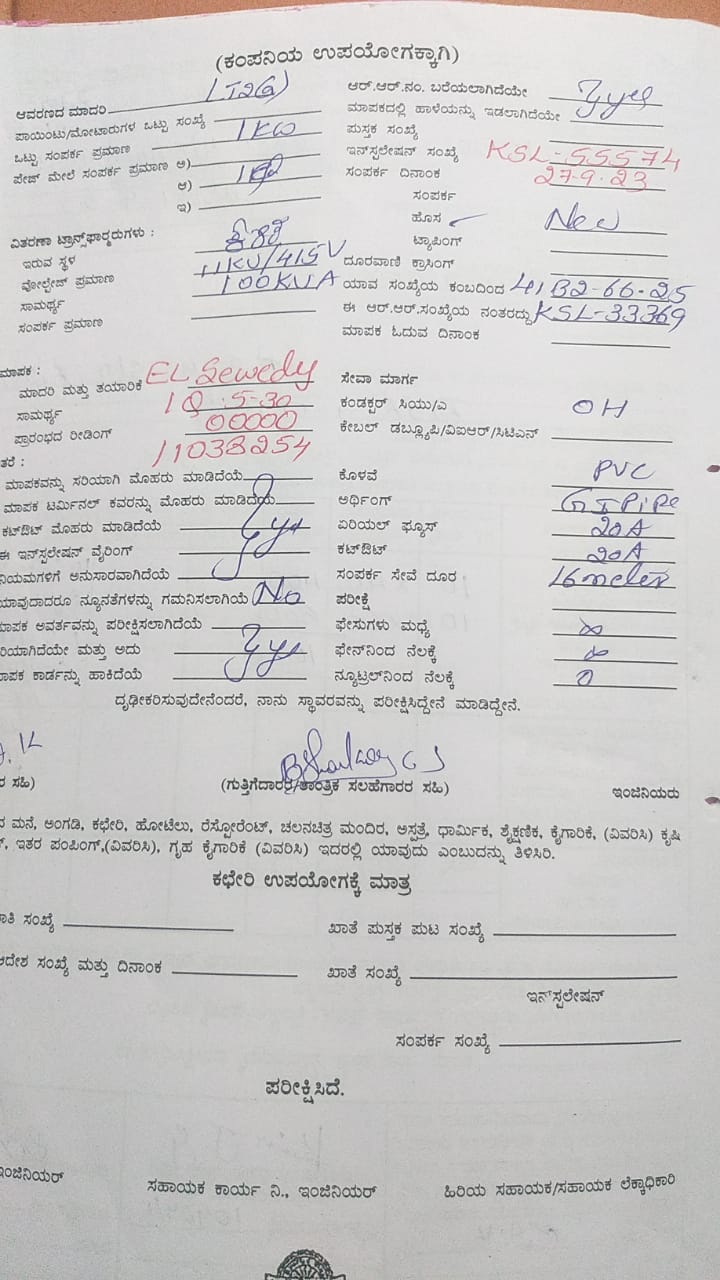 (ಕಂಪನಿಯ ಉಪಯೋಗಕ್ಕಾಗಿ)
ಆವರಣದ ಮಾದರಿ LT2(a)
ಪಾಯಿಂಟು/ಮೋಟಾರುಗಳ ಒಟ್ಟು ಸಂಖ್ಯೆ
ಒಟ್ಟು ಸಂಪರ್ಕ ಪ್ರಮಾಣ 1KW
ಪೇಜ್ ಮೇಲೆ ಸಂಪರ್ಕ ಪ್ರಮಾಣ ಅ)
ಆ)
ಇ)
ವಿತರಣಾ ಟ್ರಾನ್ಸ್‌ಫಾರ್ಮರುಗಳು :
ಇರುವ ಸ್ಥಳ
ವೋಲ್ಟೇಜ್ ಪ್ರಮಾಣ 11KV/415V
ಸಾಮರ್ಥ್ಯ 100KVA
ಸಂಪರ್ಕ ಪ್ರಮಾಣ
ಆರ್.ಆರ್.ನಂ. ಬರೆಯಲಾಗಿದೆಯೇ yes
ಮಾಪಕದಲ್ಲಿ ಹಾಳೆಯನ್ನು ಇಡಲಾಗಿದೆಯೇ
ಪುಸ್ತಕ ಸಂಖ್ಯೆ
ಇನ್‌ಸ್ಟಲೇಷನ್ ಸಂಖ್ಯೆ KSL-55574
ಸಂಪರ್ಕ ದಿನಾಂಕ 27-9-23
ಸಂಪರ್ಕ
ಹೊಸ New
ಟ್ಯಾಪಿಂಗ್
ದೂರವಾಣಿ ಕ್ರಾಸಿಂಗ್
ಯಾವ ಸಂಖ್ಯೆಯ ಕಂಬದಿಂದ 41B2-66-25
ಈ ಆರ್.ಆರ್.ಸಂಖ್ಯೆಯ ನಂತರದ್ದು KSL-33369
ಮಾಪಕ ಓದುವ ದಿನಾಂಕ
ಮಾಪಕ :
ಮಾದರಿ ಮತ್ತು ತಯಾರಿಕೆ EL Sewedy
ಸಾಮರ್ಥ್ಯ 1Q 5-30
ಪ್ರಾರಂಭದ ರೀಡಿಂಗ್ 00000
11038254
ತರೆ :
ಮಾಪಕವನ್ನು ಸರಿಯಾಗಿ ಮೊಹರು ಮಾಡಿದೆಯೆ
ಮಾಪಕ ಟರ್ಮಿನಲ್ ಕವರನ್ನು ಮೊಹರು ಮಾಡಿದೆಯೆ
ಕಟ್‌ಔಟ್ ಮೊಹರು ಮಾಡಿದೆಯೆ yes
ಈ ಇನ್‌ಸ್ಟಲೇಷನ್ ವೈರಿಂಗ್
ನಿಯಮಗಳಿಗೆ ಅನುಸಾರವಾಗಿದೆಯೆ
ಯಾವುದಾದರೂ ನ್ಯೂನತೆಗಳನ್ನು ಗಮನಿಸಲಾಗಿಯೆ No
ಮಾಪಕ ಅವರ್ತವನ್ನು ಪರೀಕ್ಷಿಸಲಾಗಿದೆಯೆ
ರಿಯಾಗಿದೆಯೇ ಮತ್ತು ಅದು yes
ಾಪಕ ಕಾರ್ಡನ್ನು ಹಾಕಿದೆಯೆ
ಸೇವಾ ಮಾರ್ಗ
ಕಂಡಕ್ಟರ್ ಸಿಯು/ಎ OH
ಕೇಬಲ್ ಡಬ್ಲ್ಯೂಪಿ/ವಿಐಆರ್/ಸಿಟಿಎನ್
ಕೊಳವೆ PVC
ಅರ್ಥಿಂಗ್ GI PiPe
ಏರಿಯಲ್ ಫ್ಯೂಸ್ 20A
ಕಟ್‌ಔಟ್ 20A
ಸಂಪರ್ಕ ಸೇವೆ ದೂರ 16 meter
ಪರೀಕ್ಷೆ
ಫೇಸುಗಳು ಮಧ್ಯೆ ∞
ಫೇಸ್‌ನಿಂದ ನೆಲಕ್ಕೆ ∞
ನ್ಯೂಟ್ರಲ್‌ನಿಂದ ನೆಲಕ್ಕೆ 0
ದೃಢೀಕರಿಸುವುದೇನೆಂದರೆ, ನಾನು ಸ್ಥಾವರವನ್ನು ಪರೀಕ್ಷಿಸಿದ್ದೇನೆ ಮಾಡಿದ್ದೇನೆ.
ರ ಸಹಿ) (ಗುತ್ತಿಗೆದಾರರ/ತಾಂತ್ರಿಕ ಸಲಹೆಗಾರರ ಸಹಿ) ಇಂಜಿನಿಯರು
ನ ಮನೆ, ಅಂಗಡಿ, ಕಛೇರಿ, ಹೋಟೆಲು, ರೆಸ್ಟೋರೆಂಟ್, ಚಲನಚಿತ್ರ ಮಂದಿರ, ಅಸ್ಪತ್ರೆ, ಧಾರ್ಮಿಕ, ಶೈಕ್ಷಣಿಕ, ಕೈಗಾರಿಕೆ, (ವಿವರಿಸಿ) ಕೃಷಿ
ಇತರ ಪಂಪಿಂಗ್,(ವಿವರಿಸಿ), ಗೃಹ ಕೈಗಾರಿಕೆ (ವಿವರಿಸಿ) ಇದರಲ್ಲಿ ಯಾವುದು ಎಂಬುದನ್ನು ತಿಳಿಸಿರಿ.
ಕಛೇರಿ ಉಪಯೋಗಕ್ಕೆ ಮಾತ್ರ
ಾತಿ ಸಂಖ್ಯೆ ಖಾತೆ ಪುಸ್ತಕ ಪುಟ ಸಂಖ್ಯೆ
ಆದೇಶ ಸಂಖ್ಯೆ ಮತ್ತು ದಿನಾಂಕ ಖಾತೆ ಸಂಖ್ಯೆ
ಇನ್‌ಸ್ಟಲೇಷನ್
ಸಂಪರ್ಕ ಸಂಖ್ಯೆ
ಪರೀಕ್ಷಿಸಿದೆ.
ಇಂಜಿನಿಯರ್ ಸಹಾಯಕ ಕಾರ್ಯ ನಿ., ಇಂಜಿನಿಯರ್ ಹಿರಿಯ ಸಹಾಯಕ/ಸಹಾಯಕ ಲೆಕ್ಕಾಧಿಕಾರಿ